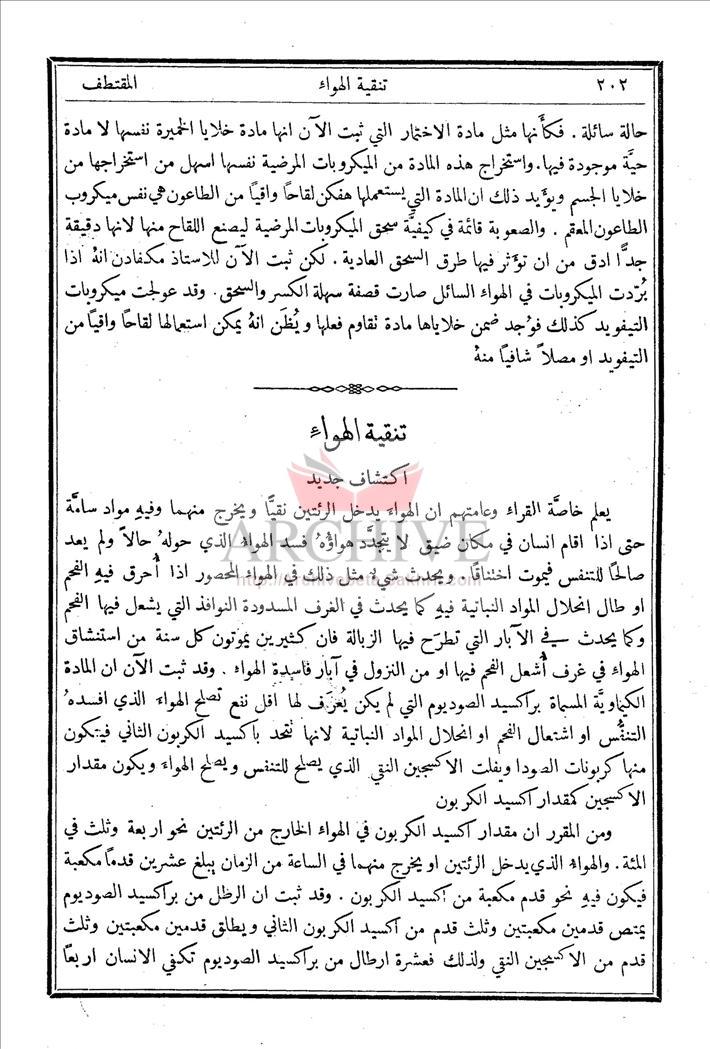 ٢٠٢ تنقية الهواء المقتطف
حالة سائلة . فكأنها مثل مادة الاختمار التي ثبت الآن انها مادة خلايا الخميرة نفسها لا مادة
حيَّة موجودة فيها. واستخراج هذه المادة من الميكروبات المرضية نفسها اسهل من استخراجها من
خلايا الجسم ويؤيد ذلك ان المادة التي يستعملها هفكن لقاحًا واقيًا من الطاعون هي نفس ميكروب
الطاعون المعقم . والصعوبة قائمة في كيفيَّة سحق الميكروبات المرضية ليصنع اللقاح منها لانها دقيقة
جدًّا ادق من ان تؤثر فيها طرق السحق العادية . لكن ثبت الآن للاستاذ مكفادن انهُ اذا
بُرّدت الميكروبات في الهواء السائل صارت قصفة سهلة الكسر والسحق . وقد عولجت ميكروبات
التيفويد كذلك فوُجد ضمن خلاياها مادة تقاوم فعلها ويُظَن انهُ يمكن استعمالها لقاحًا واقيًا من
التيفويد او مصلاً شافيًا منهُ
تنقية الهواء
اكتشاف جديد
يعلم خاصَّة القراء وعامتهم ان الهواء يدخل الرئتين نقيًّا ويخرج منهما وفيهِ مواد سامَّة
حتى اذا اقام انسان في مكان ضيق لا يتجدَّد هواؤُهُ فسد الهواء الذي حولهُ حالاً ولم يعد
صالحًا للتنفس فيموت اختناقًا . ويحدث شيءٌ مثل ذلك في الهواء المحصور اذا أُحرق فيهِ الفحم
او طال انحلال المواد النباتية فيهِ كما يحدث في الغرف المسدودة النوافذ التي يشعل فيها الفحم
وكما يحدث في الآبار التي تطرَح فيها الزبالة فان كثيرين يموتون كل سنة من استنشاق
الهواء في غرف أُشعل الفحم فيها او من النزول في آبار فاسدة الهواء . وقد ثبت الآن ان المادة
الكيماويَّة المسماة براكسيد الصوديوم التي لم يكن يُعْرَف لها اقل نفع تصلح الهواء الذي افسدهُ
التنفُّس او اشتعال الفحم او انحلال المواد النباتية لانها تتحد باكسيد الكربون الثاني فيتكون
منها كربونات الصودا ويفلت الاكسجين النقي الذي يصلح للتنفس ويصلح الهواء ويكون مقدار
الاكسجين كمقدار اكسيد الكربون
ومن المقرر ان مقدار اكسيد الكربون في الهواء الخارج من الرئتين نحو اربعة وثلث في
المئة . والهواء الذي يدخل الرئتين او يخرج منهما في الساعة من الزمان يبلغ عشرين قدمًا مكعبة
فيكون فيهِ نحو قدم مكعبة من اكسيد الكربون . وقد ثبت ان الرطل من براكسيد الصوديوم
يمتص قدمين مكعبتين وثلث قدم من اكسيد الكربون الثاني ويطلق قدمين مكعبتين وثلث
قدم من الاكسجين النقي ولذلك فعشرة ارطال من براكسيد الصوديوم تكفي الانسان اربعًا
ARCHIVE